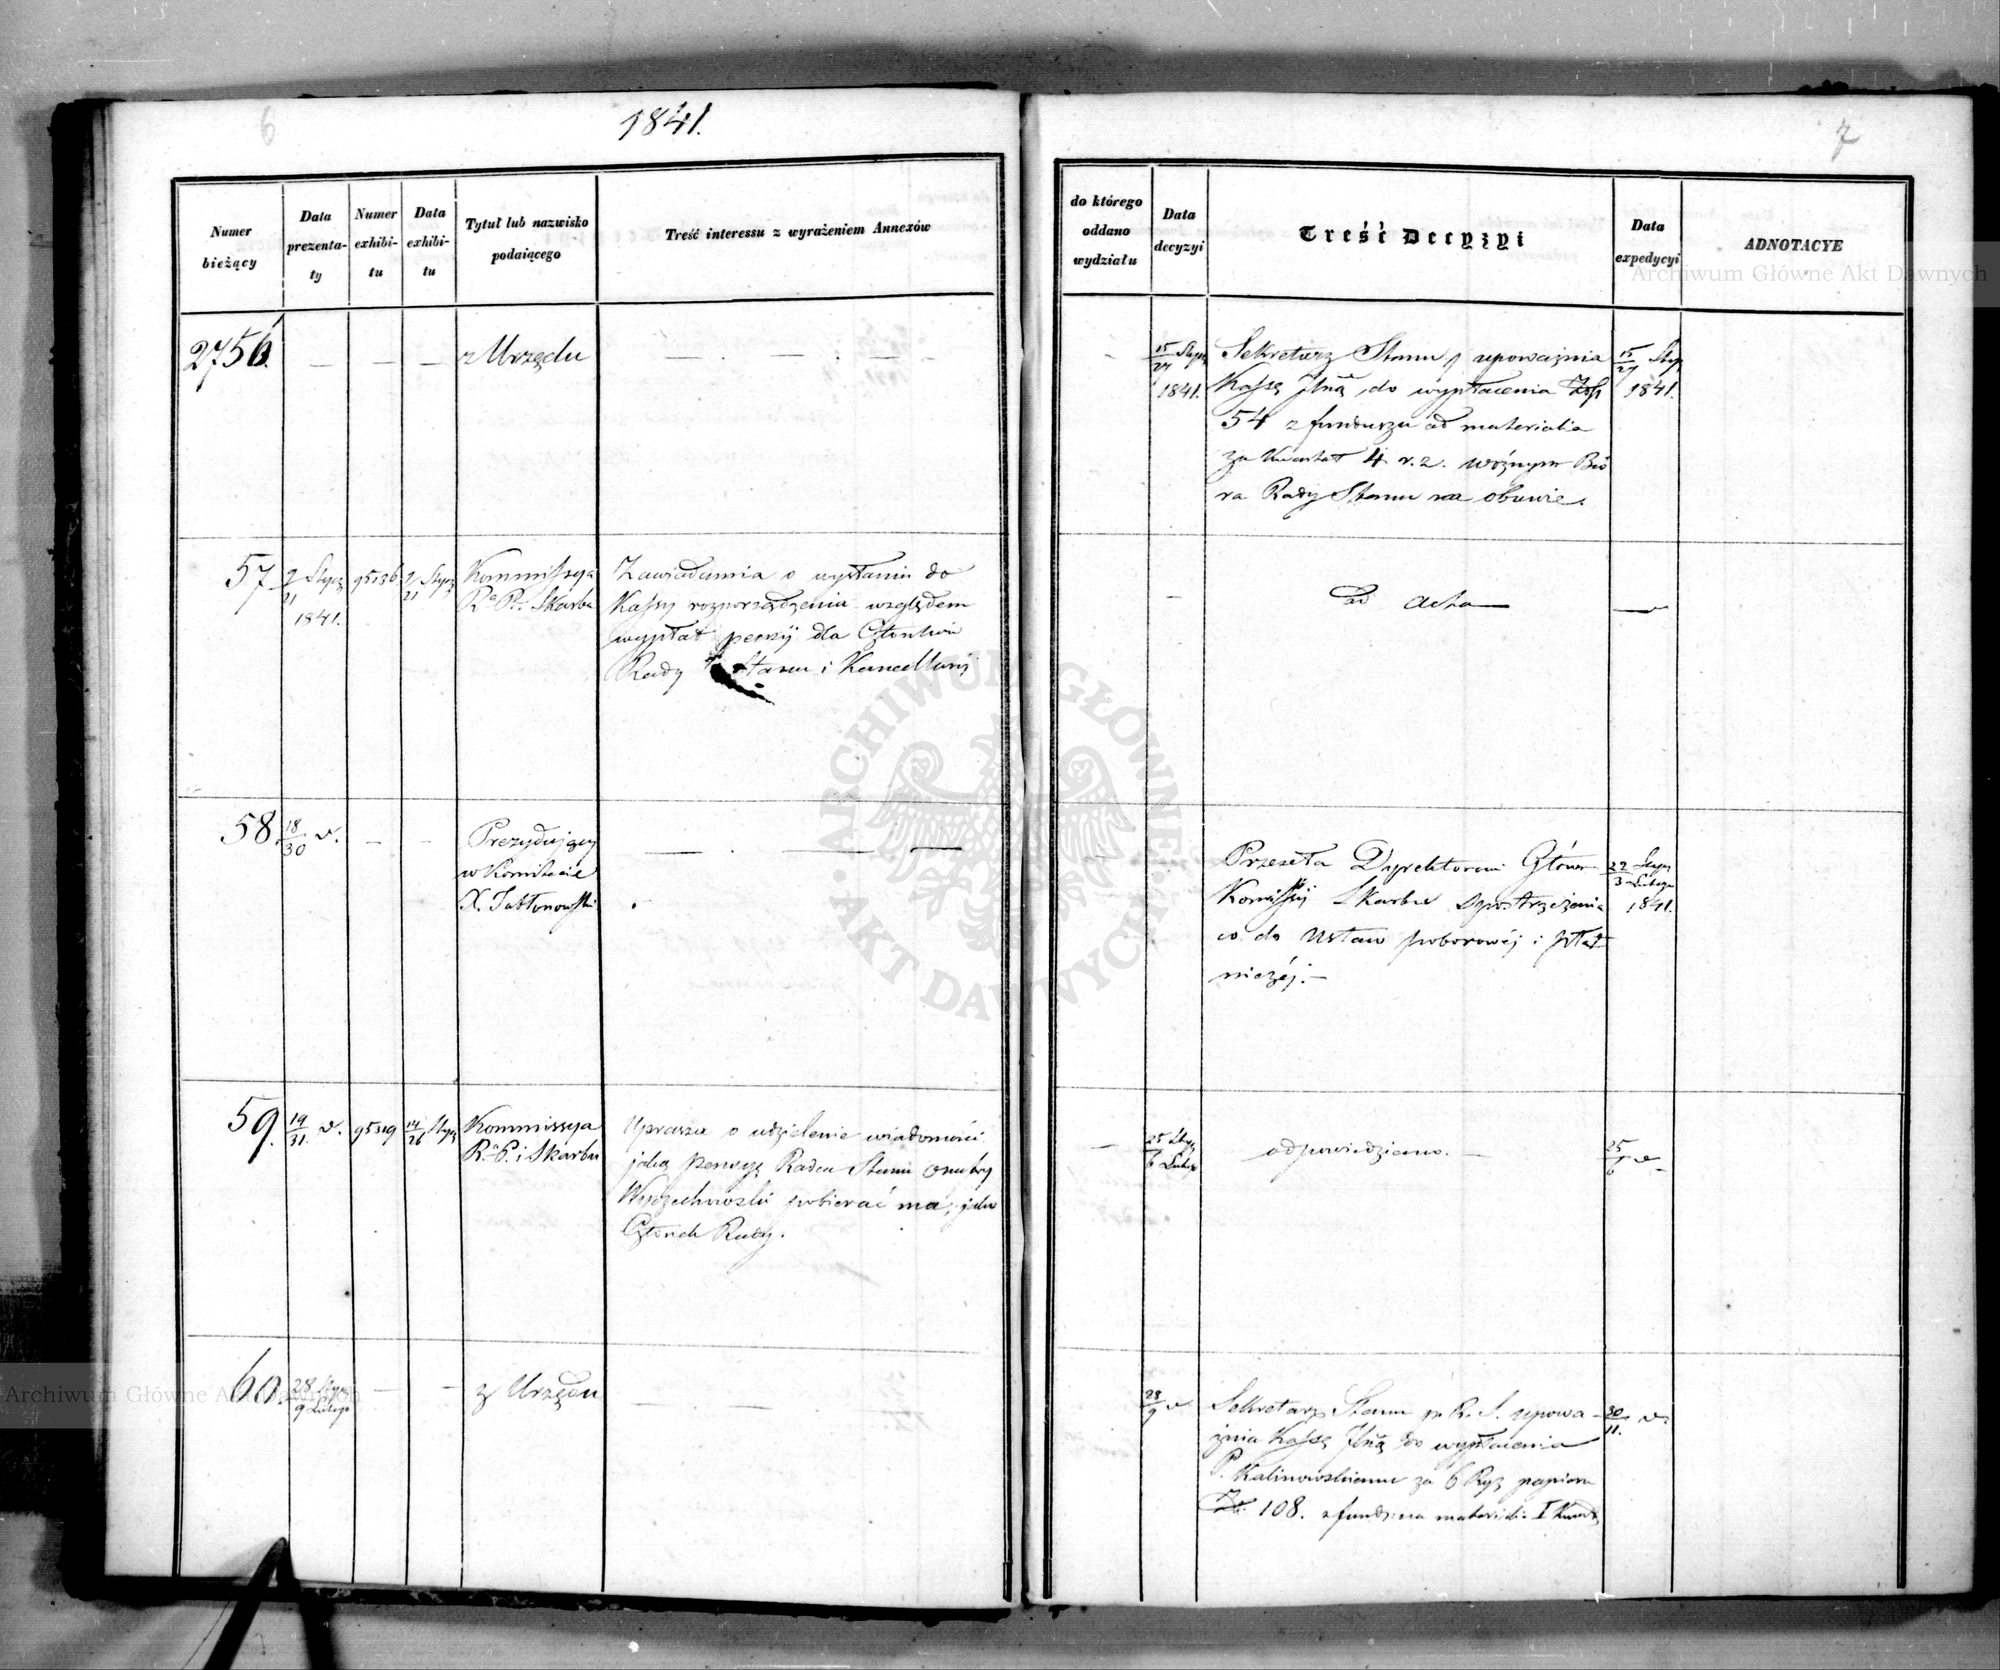 6
1841.
Numer bieżący
Data prezenta-ty
Numer exhibi-tu
Data exhibi-tu
Tytuł lub nazwisko podaiącego
Treść interessu z wyrażeniem Annexów
2756.
— — — z Urzędu — . — . — . —
57
9/21 Stycz 1841.
95136
9/21 Stycz
Kommissya
R. P. i Skarbu
Zawiadamia o wysłaniu do
Kassy rozporządzenia względem
wypłat pensij dla Członków
Rady Stanu i Kancellarij
58.
18/30 v.
— —
Prezydujący
w Komitecie
X. Jabłonowski
— . — —
59.
19/31. v.
95319
14/26 Stycz
Kommissya
R. P. i Skarbu
Uprasza o udzielenie wiadomości
jaką pensyę Radca Stanu
Wyczechowski pobierać ma, jako
Członek Rady.
60.
28 Stycz
9 Lutego
— —
z Urzędu
— . — . —
7
do którego oddano wydziału
Data decyzyi
Treść Decyzyi
Data expedycyi
ADNOTACYE
15/27 Stycz
1841.
Sekretarz Stanu upoważnia
Kassę Jlną do wypłacenia Złp
54 z funduszu ad materialia
za Kwartał 4 r. z. woźnym Bió
ra Rady Stanu na obuwie.
15/27 Sty
1841.
—
ad acta —
—
Przeseła Dyrektorowi Główn
Kommissij Skarbu spostrzeżenia
co do Ustaw poborowéj i płat
niczéj. —
22 Stycz
3 Lutego
1841.
—
25 Sty
6 Lutego
odpowiedziano. —
25/6 v —
28/9 v
Sekretarz Stanu p. R. S. upowa-
żnia Kassę Jlną do wypłacenia
P. Kalinowskiemu za 6 Ryz papieru
Zł. 108. z fundu: na material: I Kwart
30/11. v.
Archiwum Główne Akt Dawnych
ARCHIWUM GŁÓWNE • AKT DAWNYCH •
Archiwum Główne Akt Dawnych